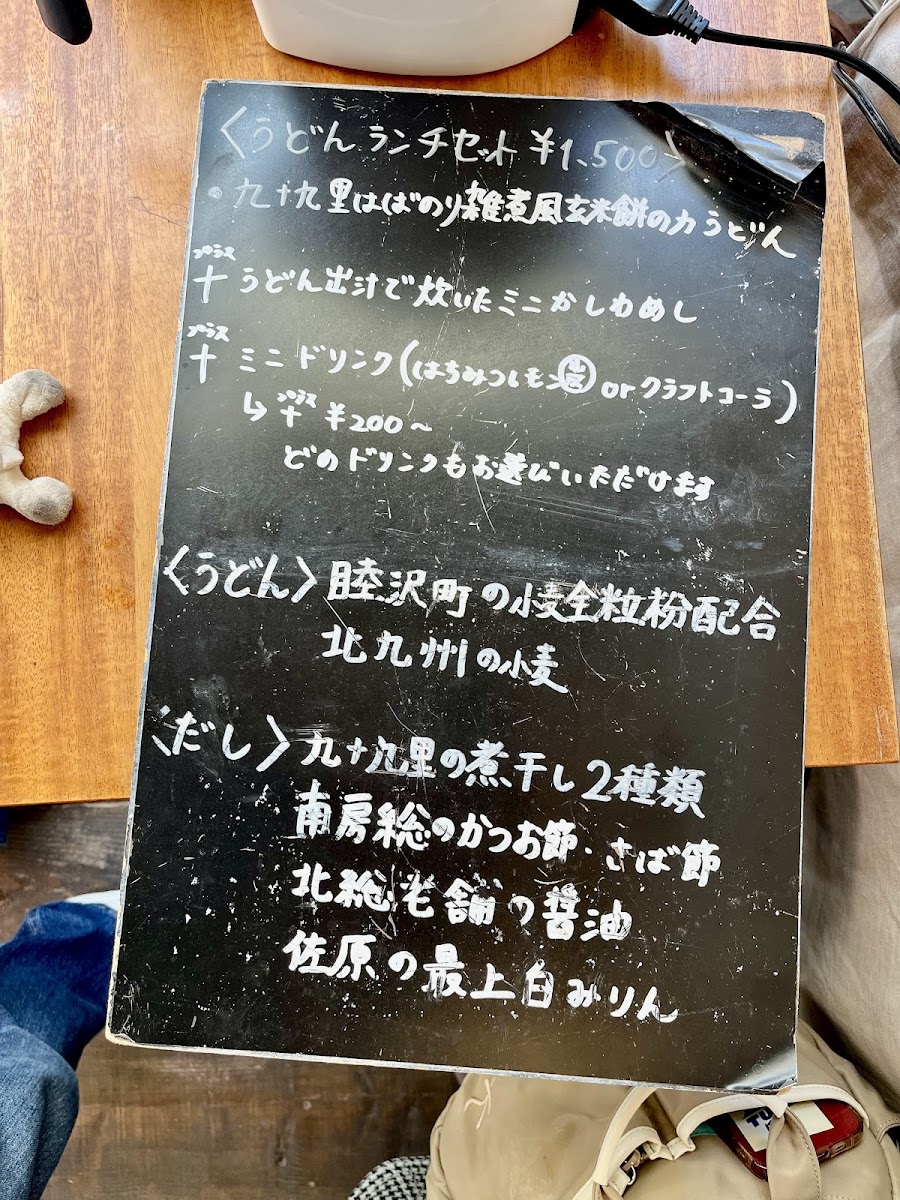 〈うどんランチセット ¥1,500〉
・九十九里はばのり雑煮風玄米餅の力うどん
プラス
＋うどん出汁で炊いたミニかしわめし
プラス
＋ミニドリンク(はちみつレモン or クラフトコーラ)
プラス
↳＋¥200〜
どのドリンクもお選びいただけます
〈うどん〉睦沢町の小麦全粒粉配合
北九州の小麦
〈だし〉九十九里の煮干し2種類
南房総のかつお節・さば節
北総老舗の醤油
佐原の最上白みりん